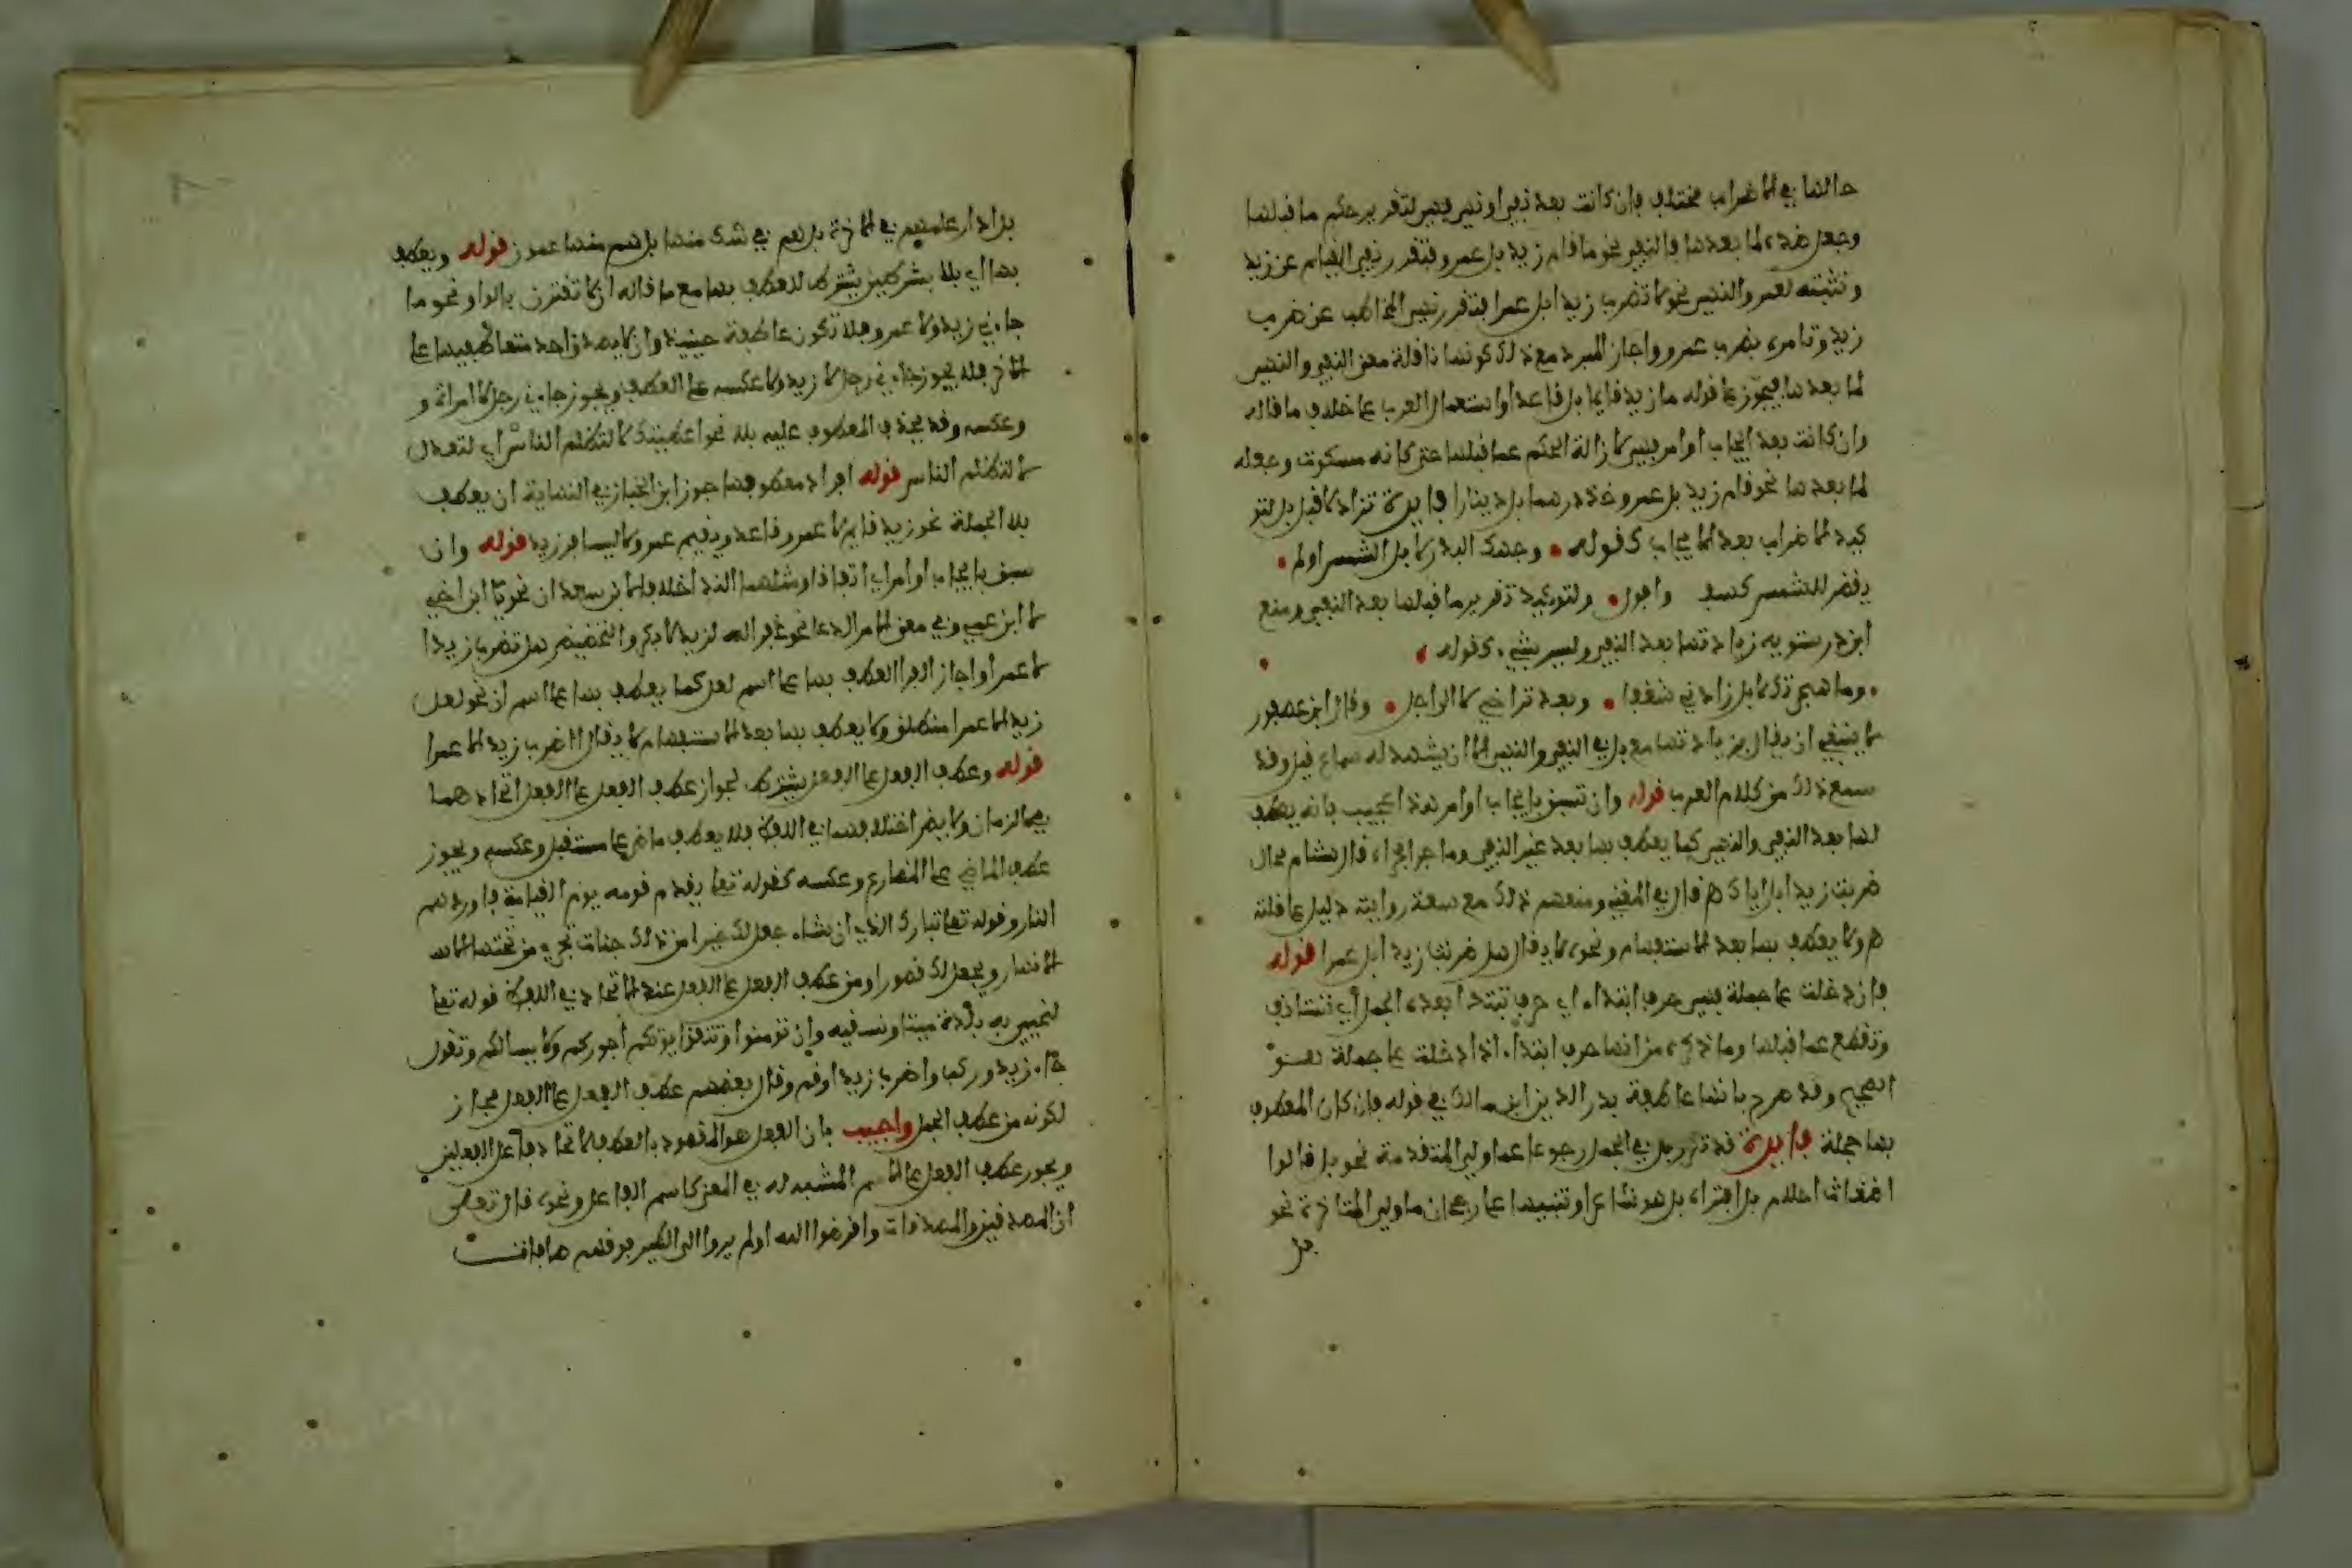 حالها في الاضراب مختلف فان كانت بعد نفي او نهي فهي لتقرير حكم ما قبلها
وجعل ضده لما بعدها فالنفي نحو ما قام زيد بل عمرو فتقرر نفي القيام عن زيد
وتثبته لعمرو والنهي نحو لا تضرب زيدا بل عمرا فتقرر نهي المخاطب عن ضرب
زيد وتامره بضرب عمرو واجاز المبرد مع ذلك كونها ناقلة معنى النفي والنهي
لما بعدها فيجوز على قوله ما زيد قايما بل قاعدا واستعمال العرب على خلاف ما قاله
وان كانت بعد ايجاب او امر فهي لازالة الحكم عما قبلها حتى كانه مسكوت وجعله
لما بعدها نحو قام زيد بل عمرو وخذ درهما بل دينارا فايدة تزاد لا قبل بل لتو
كيد الاضراب بعد الايجاب كقوله • وجهك البدر لا بل الشمس لو لم •
يقض للشمس كسفة وافول • ولتوكيد تقرير ما قبلها بعد النفي ومنع
ابن درستويه زيادتها بعد النفي وليس بشيء كقوله •
• وما هجرتك لا بل زادني شغفا • وبعد تراخي لا الى اجل • وقال ابن عصفور
لا ينبغي ان يقال بزيادتها مع بل في النفي والنهي الا ان يشهد له سماع قيل وقد
سمع ذلك من كلام العرب قوله وان تسبق بايجاب او امر هذا اجيب بانه يعطف
بها بعد النفي والنهي كما يعطف بها بعد غير النفي وما جرا مجراه قال هشام محال
ضربت زيدا بل اياك هـ قال في المغني ومنعهم ذلك مع سعة روايته دليل على قلته
هـ ولا يعطف بها بعد الاستفهام ونحوه لا يقال هل ضربت زيدا بل عمرا قوله
فان دخلت على جملة فهي حرف ابتداء اي حرف تبتدا بعده الجمل اي تستانف
وتقطع عما قبلها وما ذكره من انها حرف ابتداء اذا دخلت على جملة هو
الصحيح وقد صرح بانها عاطفة بدر الدين ابن مالك في قوله فان كان المعطوف
بها جملة فايدة قد تكرر بل في الجمل رجوعا عما ولي المتقدمة نحو بل قالوا
اضغاث احلام بل افتراه بل هو شاعر او تنبيها على رجحان ما ولي المتاخرة نحو
بل
بل ادارك علمهم في الاخرة بل هم في شك منها بل هم منها عمون قوله ويعطف
بها اي بلا بشرطين يشترط للعطف بها مع ما قاله ان لا تقترن بالواو نحو ما
جاءني زيد ولا عمرو فلا تكون عاطفة حينئذ وان لا يصدق احد متعاطفيها على
الاخر فلا يجوز جاءني رجل لا زيد ولا عكسه على العطف ويجوز جاءني رجل لا امراة و
وعكسه وقد يحذف المعطوف عليه بلا نحو اعطيتك لا لتظلم الناس اي لتعدل
لا لتظلم الناس قوله افراد معطوفها جوز ابن الخباز في النهاية ان يعطف
بلا الجملة نحو زيد قايم لا عمرو قاعد ويقيم عمرو لا يسافر زيد قوله وان
سبق بايجاب او امر اي اتفاقا ومثلهما الندا خلافا لابن سعدان نحو يا ابن اخي
لا ابن عمي وفي معنى الامر الدعا نحو غفر الله لزيد لا بكر والتحضيض هل تضرب زيدا
لا عمرا واجاز الفرا العطف بها على اسم لعل كما يعطف بها على اسم ان نحو لعل
زيدا لا عمرا منطلق ولا يعطف بها بعد الاستفهام لا يقال اضرب زيد لا عمرا
قوله وعطف الفعل على الفعل يشترط لجواز عطف الفعل على الفعل اتحادهما
في الزمان ولا يضر اختلافهما في اللفظ فلا يعطف ماض على مستقبل وعكسه ويجوز
عطف الماضي على المضارع وعكسه كقوله تعلى يقدم قومه يوم القيامة فاوردهم
النار وقوله تعلى تبارك الذي ان شاء جعل لك خيرا من ذلك جنات تجري من تحتها الا
الانهار ويجعل لك قصورا ومن عطف الفعل على الفعل عند الاتحاد في اللفظ قوله تعلى
لنحيي به بلدة ميتا ونسقيه وان تومنوا وتتقوا يوتكم اجوركم ولا يسالكم وتقول
جاء زيد وركب واضرب زيدا وقم وقال بعضهم عطف الفعل على الفعل مجاز
لكونه من عطف الجمل واجيب بان الفعل هو المقصود بالعطف لاتحاد فاعل الفعلين
ويجوز عطف الفعل على الاسم المشبه له في المعنى كاسم الفاعل ونحوه قال تعلى
ان المصدقين والمصدقات واقرضوا الله اولم يروا الى الطير فوقهم صافات